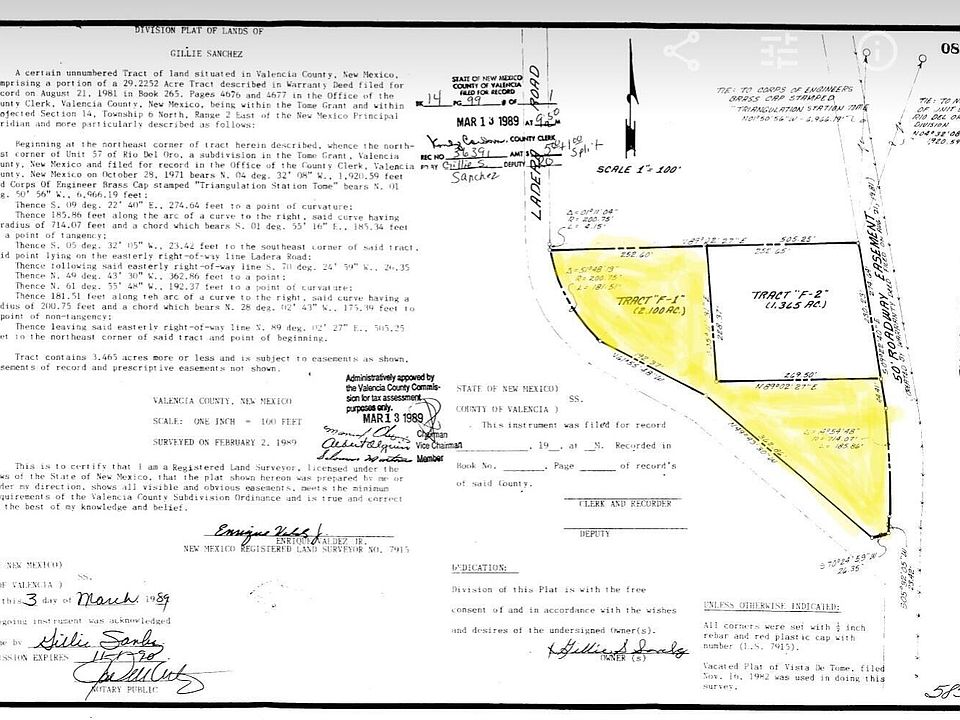 DIVISION PLAT OF LANDS OF
GILLIE SANCHEZ
A certain unnumbered Tract of land situated in Valencia County, New Mexico,
mprising a portion of a 29.2252 Acre Tract described in Warranty Deed filed for
cord on August 21, 1981 in Book 265, Pages 4676 and 4677 in the Office of the
unty Clerk, Valencia County, New Mexico, being within the Tome Grant and within
ojected Section 14, Township 6 North, Range 2 East of the New Mexico Principal
ridian and more particularly described as follows:
Beginning at the northeast corner of tract herein described, whence the north-
st corner of Unit 57 of Rio Del Oro, a subdivision in the Tome Grant, Valencia
unty, New Mexico and filed for record in the Office of the County Clerk, Valencia
unty, New Mexico on October 28, 1971 bears N. 04 deg. 32' 08" W., 1,920.59 feet
d Corps Of Engineer Brass Cap stamped "Triangulation Station Tome" bears N. 01
g. 50' 56" W., 6,966.19 feet;
Thence S. 09 deg. 22' 40" E., 274.64 feet to a point of curvature;
Thence 185.86 feet along the arc of a curve to the right, said curve having
radius of 714.07 feet and a chord which bears S. 01 deg. 55' 16" E., 185.34 feet
a point of tangency;
Thence S. 05 deg. 32' 05" W., 23.42 feet to the southeast corner of said tract,
id point lying on the easterly right-of-way line Ladera Road;
Thence following said easterly right-of-way line S. 70 deg. 24' 59" W., 26.35
Thence N. 49 deg. 43' 30" W., 362.86 feet to a point;
Thence N. 61 deg. 55' 48" W., 192.37 feet to a point of curvature;
Thence 181.51 feet along the arc of a curve to the right, said curve having a
dius of 200.75 feet and a chord which bears N. 28 deg. 02' 43" W., 175.39 feet to
point of non-tangency;
Thence leaving said easterly right-of-way line N. 89 deg. 02' 27" E., 505.25
et to the northeast corner of said tract and point of beginning.
Tract contains 3.465 acres more or less and is subject to easements as shown,
sements of record and prescriptive easements not shown.
VALENCIA COUNTY, NEW MEXICO
SCALE: ONE INCH = 100 FEET
SURVEYED ON FEBRUARY 2, 1989
Administratively approved by
the Valencia County Commis-
sion for tax assessment
purposes only.
MAR 13 1989
Chairman
Vice Chairman
Member
This is to certify that I am a Registered Land Surveyor, licensed under the
ws of the State of New Mexico, that the plat shown hereon was prepared by me or
der my direction, shows all visible and obvious easements, meets the minimum
quirements of the Valencia County Subdivision Ordinance and is true and correct
the best of my knowledge and belief.
ENRIQUE VALDEZ JR.
NEW MEXICO REGISTERED LAND SURVEYOR NO. 7915
NEW MEXICO)
SS.
OF VALENCIA )
this 3 day of March, 1989
egoing instrument was acknowledged
me by
SSION EXPIRES
NOTARY PUBLIC
STATE OF NEW MEXICO
COUNTY OF VALENCIA
FILED FOR RECORD
BK 14 PG 99 # OF 1
MAR 13 1989 AT
COUNTY CLERK
REC NO 36391 AMT $
DEPUTY
Sanchez
split
LADERA ROAD
SCALE 1"=100'
TIE: TO CORPS OF ENGINEERS
BRASS CAP STAMPED,
"TRIANGULATION STATION TOME"
N01°50'56"W - 6,966.19'
08
TIE: TO N
RIO DEL OR
DIVISION
N04°32'08
(1,920.59
Δ=01°11'04"
R=200.75'
L=4.15'
N89°02'27"E 505.25'
252.60' 252.65'
Δ=51°48'19"
R=200.75'
L=181.51'
TRACT "F-1"
(2.100 AC.)
TRACT "F-2"
(1.365 AC.)
50' ROADWAY EASEMENT
269.50'
N89°02'27"E
N61°55'48"W
192.37'
Δ=14°54'48"
R=714.07'
L=185.86'
S70°24'59"W
26.35'
S05°32'05"W
23.42'
STATE OF NEW MEXICO)
SS.
COUNTY OF VALENCIA )
This instrument was filed for record
, 19 , at M. Recorded in
Book No. , Page of record's
of said County.
CLERK AND RECORDER
DEPUTY
DEDICATION:
Division of this Plat is with the free
consent of and in accordance with the wishes
and desires of the undersigned owner(s).
OWNER (s)
UNLESS OTHERWISE INDICATED:
All corners were set with ½ inch
rebar and red plastic cap with
number (L.S. 7915).
Vacated Plat of Vista De Tome, filed
Nov. 16, 1982 was used in doing this
survey.